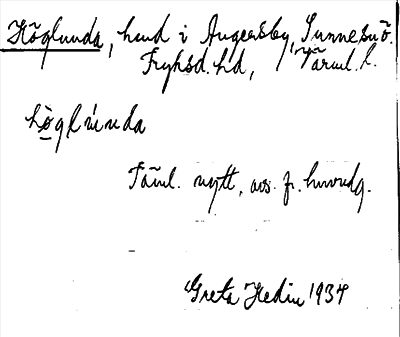 Höglunda, hmd i Augersby, Sunne sn ö.
Fryksd. hd, Värml. l.
hö̀glúnda
Täml. nytt, avs. fr. huvudg.
Greta Hedin 1934